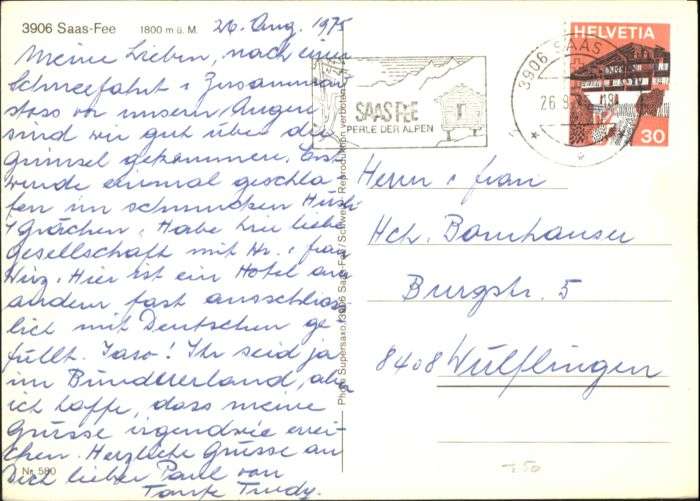 3906 Saas-Fee 1800 m ü. M.
26. Aug. 1975
Meine Lieben, nach einer
Schneefahrt & Zusammen-
stoss vor unsern Augen
sind wir gut über die
Grimsel gekommen. Erst
wurde einmal geschla-
fen im schmucken Hüsli
i Grächen. Habe hier liebe
Gesellschaft mit Hr. & Frau
Wirz. Hier ist ein Hotel am
andern fast ausschliess-
lich mit Deutschen ge
füllt. Jaso! Ihr seid ja
im Bündnerland, aber
ich hoffe, dass meine
Grüsse irgendwie errei-
chen. Herzliche Grüsse an
Dich lieber Paul von
Tante Trudy.
Nr. 580
Photo Supersaxo, 3906 Saas-Fee/Schweiz Reproduktion verboten
SAAS FEE
PERLE DER ALPEN
3906 SAAS
26.8.
HELVETIA
30
Herrn & Frau
Hch. Bornhauser
Burgstr. 5
8408 Wülflingen